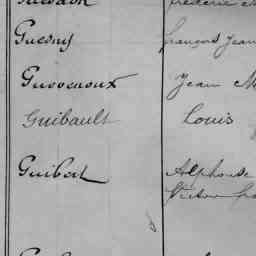 Guesny françois Jean
Guovenoux Jean M
Guibault Louis
Guibert Alphonse
Victor